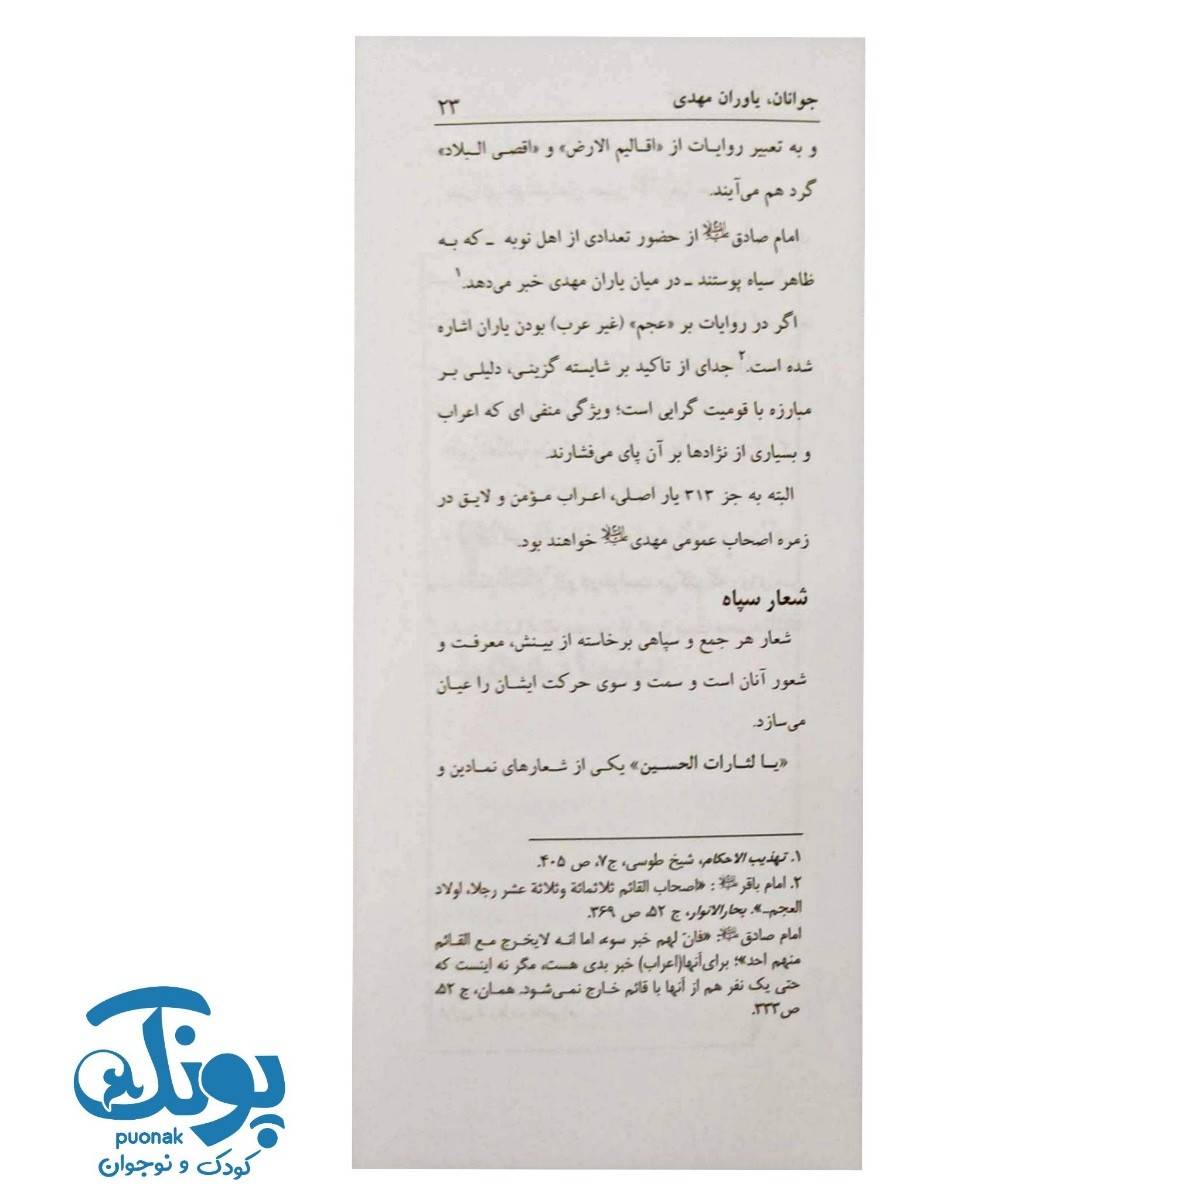 جوانان، یاوران مهدی ۲۳
و به تعبیر روایات از «اقالیم الارض» و «اقصی البلاد»
گرد هم می‌آیند.
امام صادق علیه‌السلام از حضور تعدادی از اهل نوبه ـ که به
ظاهر سیاه پوستند ـ در میان یاران مهدی خبر می‌دهد.۱
اگر در روایات بر «عجم» (غیر عرب) بودن یاران اشاره
شده است.۲ جدای از تاکید بر شایسته گزینی، دلیلی بر
مبارزه با قومیت گرایی است؛ ویژگی منفی ای که اعراب
و بسیاری از نژادها بر آن پای می‌فشارند.
البته به جز ۳۱۳ یار اصلی، اعراب مؤمن و لایق در
زمره اصحاب عمومی مهدی علیه‌السلام خواهند بود.
شعار سپاه
شعار هر جمع و سپاهی برخاسته از بینش، معرفت و
شعور آنان است و سمت و سوی حرکت ایشان را عیان
می‌سازد.
«یا لثارات الحسین» یکی از شعارهای نمادین و
۱. تهذیب الاحکام، شیخ طوسی، ج۷، ص ۴۰۵.
۲. امام باقر علیه‌السلام: «اصحاب القائم ثلاثمائة وثلاثة عشر رجلا، اولاد
العجم...». بحارالانوار، ج ۵۲، ص ۳۶۹.
امام صادق علیه‌السلام: «فانّ لهم خبر سوء، اما انه لایخرج مع القائم
منهم احد»؛ برای آنها(اعراب) خبر بدی هست، مگر نه اینست که
حتی یک نفر هم از آنها با قائم خارج نمی‌شود. همان، ج ۵۲،
ص۳۳۳.
پونک
puonak
کودک و نوجوان